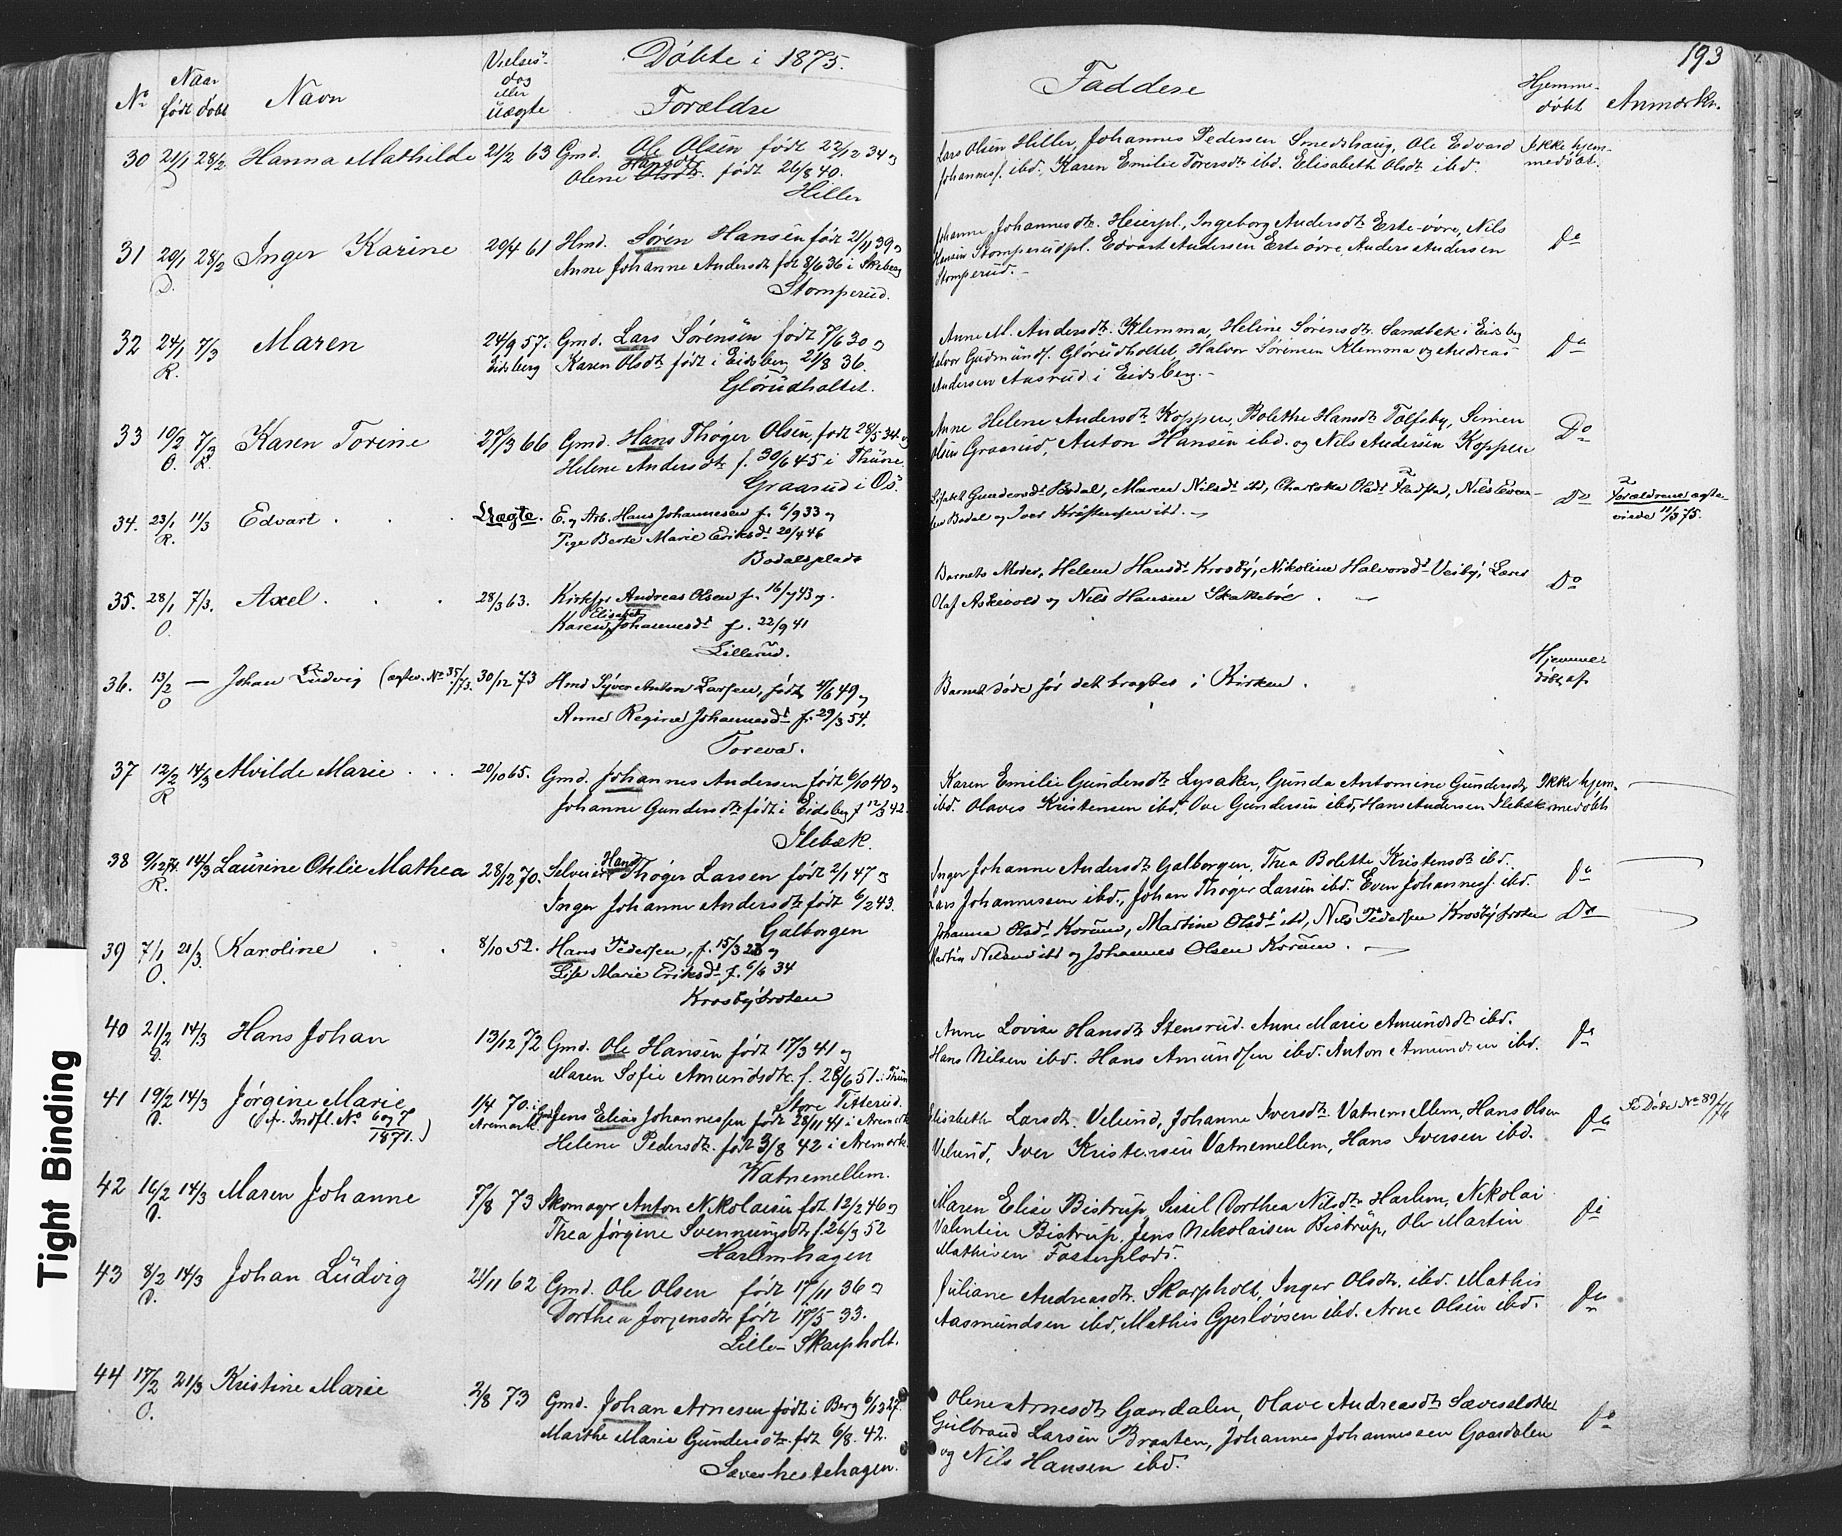 Døbte i 1875.
193
No
Naar
født
døbt
Navn
Vielses-
dag
eller
Uægte
Forældre
Faddere
Hjemme-
døbt
Anmærkn.
30 21/1 28/2 Hanna Mathilde 21/2 63 Gmd. Ole Olsen født 22/12 34 og
Olene Hansdt. født 26/8 40.
Hiller
Lars Olsen Hiller, Johannes Pedersen Smedshaug, Ole Edvard
Johannesf. ibd. Karen Emilie Torersdt. ibd. Elisabeth Olsdt. ibd.
Ikke hjem-
medøbt.
31 29/1 28/2 Inger Karine 29/4 61 Hmd. Søren Hansen født 21/11 39 og
D. Anne Johanne Andersdt. født 8/6 36 i Skiberg
Stomperud.
Johanne Johannesdt. Heierpl., Ingeborg Andersdt. Erte øvre, Nils
Hansen Stomperudpl. Edvart Andersen Erte øvre, Anders Andersen
Stomperud.
Do
32 24/1 7/3 Maren 24/9 57. Gmd. Lars Sørensen født 7/6 30 og
R. Eidsberg Karen Olsdt. født i Eidsberg 21/8 36.
Glørudholtet.
Anne M. Andersdt. Klemma, Helene Sørensdt. Sandbæk i Eidsberg
Halvor Gudmundf. Glørudholtet, Halvor Sørensen Klemma og Andreas
Andersen Aasrud i Eidsberg.
Do
33 10/2 7/3 Karen Torine 27/3 66 Gmd. Hans Thøger Olsen, født 28/5 34 og
O. R. Helene Andersdt. f. 30/6 45 i Thrune
Graarud i Os.
Anne Helene Andersdt. Kopper, Bolethe Hansdt. Tolfsby, Simen
Olsen Graarud, Anton Hansen ibd. og Nils Andersen Kopper
Do
34. 23/1 11/3 Edvart Uægte. E. og Arb. Hans Johannesen f. 6/9 33 og
R. Pige Berte Marie Eriksdt. 20/4 46
Bodalsplads
Lisabet Gundersdt. Bodal, Maren Nilsdt. ibd, Charlotte Olsdt. Fladstad, Nils Even-
sen Bodal og Iver Kristensen ibd.
Do
Forældrene ægte-
viede 11/3 75.
35. 28/1 7/3. Axel. 28/3 63. Kirkesr Andreas Olsen f. 16/7 43 og
O. Karen Elisabet Johannesdt. f. 22/9 41
Lillerud.
Barnets Moder, Helene Hansdt. Krosby, Nikoline Halvorsdt. Vesby, Lærer
Olaf Askevold og Nils Hansen Skakkebøl.
Do
36. 13/2 — Johan Ludvig (ægtev. No 35/73. 30/12 73 Hmd Syver Anton Larsen, født 4/6 49 og
O Anne Regine Johannesdt. f. 29/3 54.
Toreval.
Barnet døde før det bragtes i Kirken.
Hjemme-
døbt af
37 12/2 14/3 Alvilde Marie 20/10 65. Gmd. Johannes Andersen født 6/10 40 og
R Johanne Gundersdt. født i Eidsberg 12/3 42.
Ilebæk.
Karen Emilie Gundersdt. Lysaker, Gunda Antomine Gundersdt.
ibd. Olaves Kristensen ibd, Ove Gundersen ibd, Hans Andersen Ilebæk
Ikke hjem-
medøbt
38 9/12 74. 14/3 Laurine Othlie Mathea 28/12 70. Selveier Hans Thøger Larsen født 2/1 47 og
R. Inger Johanne Andersdt. født 6/2 43.
Galborgen
Inger Johanne Andersdt. Galborgen, Thea Bolette Kristensdt. ibd.
Lars Johannessen ibd., Johan Thøger Larsen ibd. Even Johannesf. ibd.
Do
39 7/1 21/3. Karoline 8/10 52. Hans Pedersen, f. 15/3 23 og
O. Lise Marie Eriksdt. f. 6/6 34
Krosbybroten
Johanna Olsdt. Korum, Martine Olsdt. ibd, Nils Pedersen Krosbybroten
Martin Nilsen ibd og Johannes Olsen Korum.
Do
40 21/2 14/3 Hans Johan 13/12 72 Gmd. Ole Hansen født 17/3 41 og
Maren Sofie Amundsdt. f. 26/6 51 i Thrun
Store Titterud.
Anne Lovise Hansdt. Stensrud. Anne Marie Amundsdt. ibd.
Hans Nilsen ibd. Hans Amundsen ibd. Anton Amundsen ibd.
Do
41 19/2 14/3 Jørgine Marie 1/4 70. Jens Elias Johannessen født 28/11 41 i Aremark
O. (fr. Indfl. No 6 og 7 1871.) Aremark Helene Pedersdt. født 3/8 42 i Aremark
Vatnemellem.
Elisabeth Larsdt. Velund, Johanne Iversdt. Vatnemellem, Hans Olsen
Velund, Iver Kristensen Vatnemellem, Hans Iversen ibd.
Do
Se Døde No 89/76
42 16/2 14/3 Maren Johanne 7/8 73 Skomagr Anton Nikolaisen født 12/2 46 og
O. Thea Jørgine Svenningsdt. f. 26/3 52
Harlemhagen
Maren Elise Bistrup, Sissil Dorthea Nilsdt. Harlem, Nikolai
Valentin Bistrup, Jens Nikolaisen Bistrup, Ole Martin
Mathisen Fosterplads.
Do
43 8/2 14/3 Johan Ludvig 21/11 62 Gmd. Ole Olsen født 17/11 36 og
O. Dorthea Jørgensdt. født 17/5 33.
Lille Skarpholt.
Juliane Andreasdt. Skarpholt, Inger Olsdt. ibd. Mathis
Aasmundsen ibd, Mathis Gjerløvsen ibd. Arne Olsen ibd.
Do
44 17/2 21/3 Kristine Marie 2/8 73 Gmd. Johan Arnesen født i Berg 6/13 27.
O. Marthe Marie Gundersdt. født 6/8. 42.
Sæveshestehagen.
Olene Arnesdt. Gaardalen, Olave Andreasdt. Sævesslottet
Gulbrand Larsen Braaten, Johannes Johannessen Gaardalen
og Nils Hansen ibd.
Do
Tight Binding